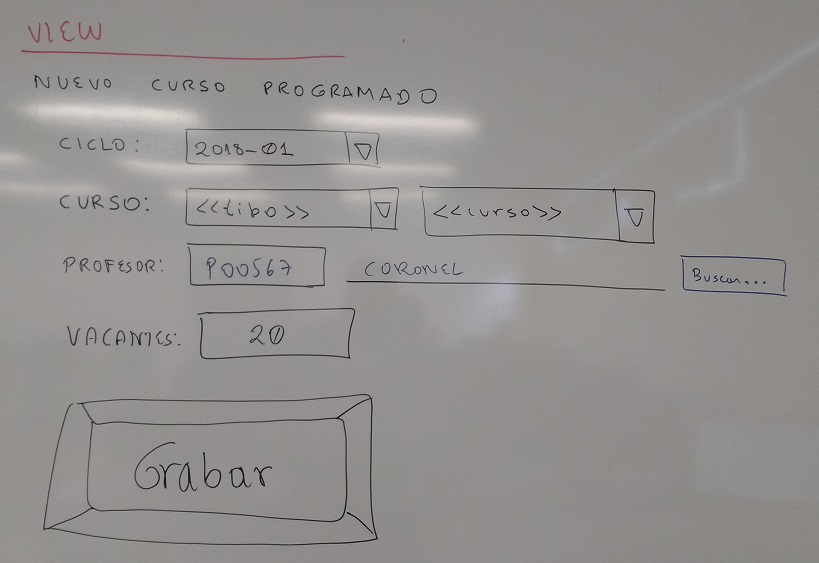 VIEW
NUEVO CURSO PROGRAMADO
CICLO: 2018-01
CURSO: <<tipo>> <<curso>>
PROFESOR: P00567 CORONEL Buscar...
VACANTES: 20
Grabar